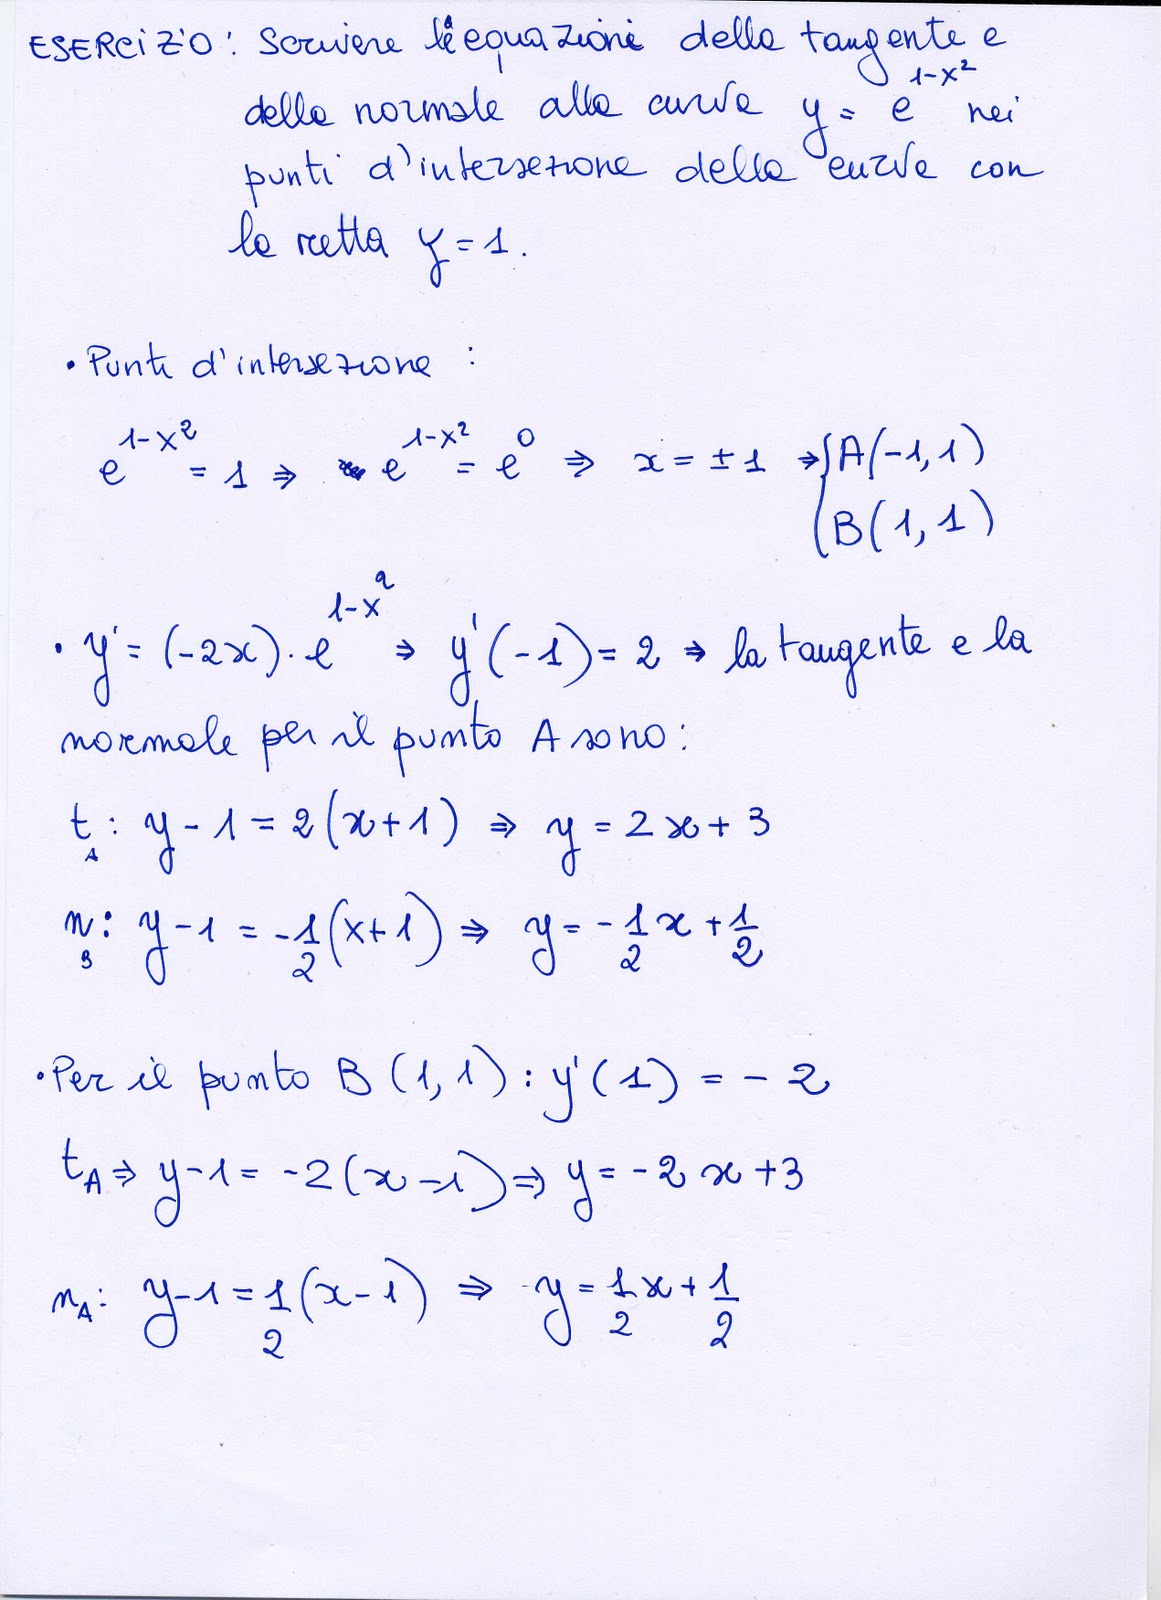 ESERCIZIO: Scrivere le equazioni della tangente e
della normale alla curva y = e^{1-x²} nei
punti d'intersezione della curva con
la retta y = 1.
• Punti d'intersezione :
e^{1-x²} = 1 ⇒ e^{1-x²} = e^0 ⇒ x = ±1 ⇒ { A(-1,1)
B(1,1)
• y' = (-2x)·e^{1-x²} ⇒ y'(-1) = 2 ⇒ la tangente e la
normale per il punto A sono:
t_A : y - 1 = 2(x+1) ⇒ y = 2x + 3
n_B : y - 1 = -1/2(x+1) ⇒ y = -1/2 x + 1/2
• Per il punto B (1,1) : y'(1) = - 2
t_A ⇒ y - 1 = -2(x-1) ⇒ y = -2x + 3
n_A : y - 1 = 1/2(x-1) ⇒ y = 1/2 x + 1/2